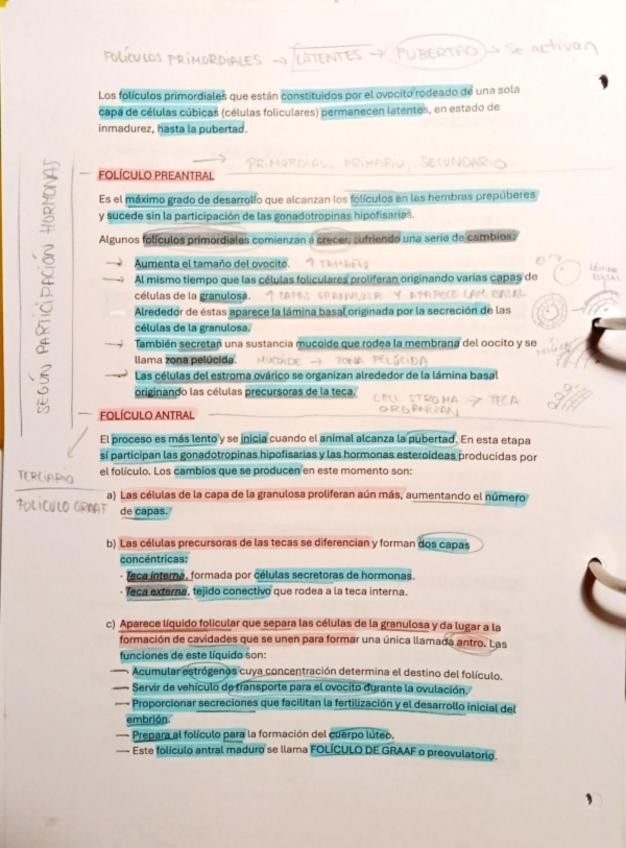 FOLÍCULOS PRIMORDIALES → LATENTES → PUBERTAD → Se activan
Los folículos primordiales que están constituidos por el ovocito rodeado de una sola
capa de células cúbicas (células foliculares) permanecen latentes, en estado de
inmadurez, hasta la pubertad.
→ PRIMORDIAL, PRIMARIO, SECUNDARIO
SEGÚN PARTICIPACIÓN HORMONAS
FOLÍCULO PREANTRAL
Es el máximo grado de desarrollo que alcanzan los folículos en las hembras prepúberes
y sucede sin la participación de las gonadotropinas hipofisarias.
Algunos folículos primordiales comienzan a crecer, sufriendo una serie de cambios:
→ Aumenta el tamaño del ovocito. ↑ TAMAÑO
→ Al mismo tiempo que las células foliculares proliferan originando varias capas de
células de la granulosa. ↑ CAPAS GRANULOSA Y APARECE LAM BASAL
LÁMINA
BASAL
Alrededor de éstas aparece la lámina basal originada por la secreción de las
células de la granulosa.
→ También secretan una sustancia mucoide que rodea la membrana del oocito y se
llama zona pelúcida. MUCOIDE → ZONA PELÚCIDA
→ Las células del estroma ovárico se organizan alrededor de la lámina basal
originando las células precursoras de la teca.
CELL STROMA → TECA
ORGANIZAN
FOLÍCULO ANTRAL
El proceso es más lento y se inicia cuando el animal alcanza la pubertad. En esta etapa
sí participan las gonadotropinas hipofisarias y las hormonas esteroideas producidas por
el folículo. Los cambios que se producen en este momento son:
TERCIARIO
FOLICULO GRAAF
a) Las células de la capa de la granulosa proliferan aún más, aumentando el número
de capas.
b) Las células precursoras de las tecas se diferencian y forman dos capas
concéntricas:
· Teca interna, formada por células secretoras de hormonas.
· Teca externa, tejido conectivo que rodea a la teca interna.
c) Aparece líquido folicular que separa las células de la granulosa y da lugar a la
formación de cavidades que se unen para formar una única llamada antro. Las
funciones de este líquido son:
— Acumular estrógenos cuya concentración determina el destino del folículo.
— Servir de vehículo de transporte para el ovocito durante la ovulación.
— Proporcionar secreciones que facilitan la fertilización y el desarrollo inicial del
embrión.
— Prepara al folículo para la formación del cuerpo lúteo.
— Este folículo antral maduro se llama FOLÍCULO DE GRAAF o preovulatorio.